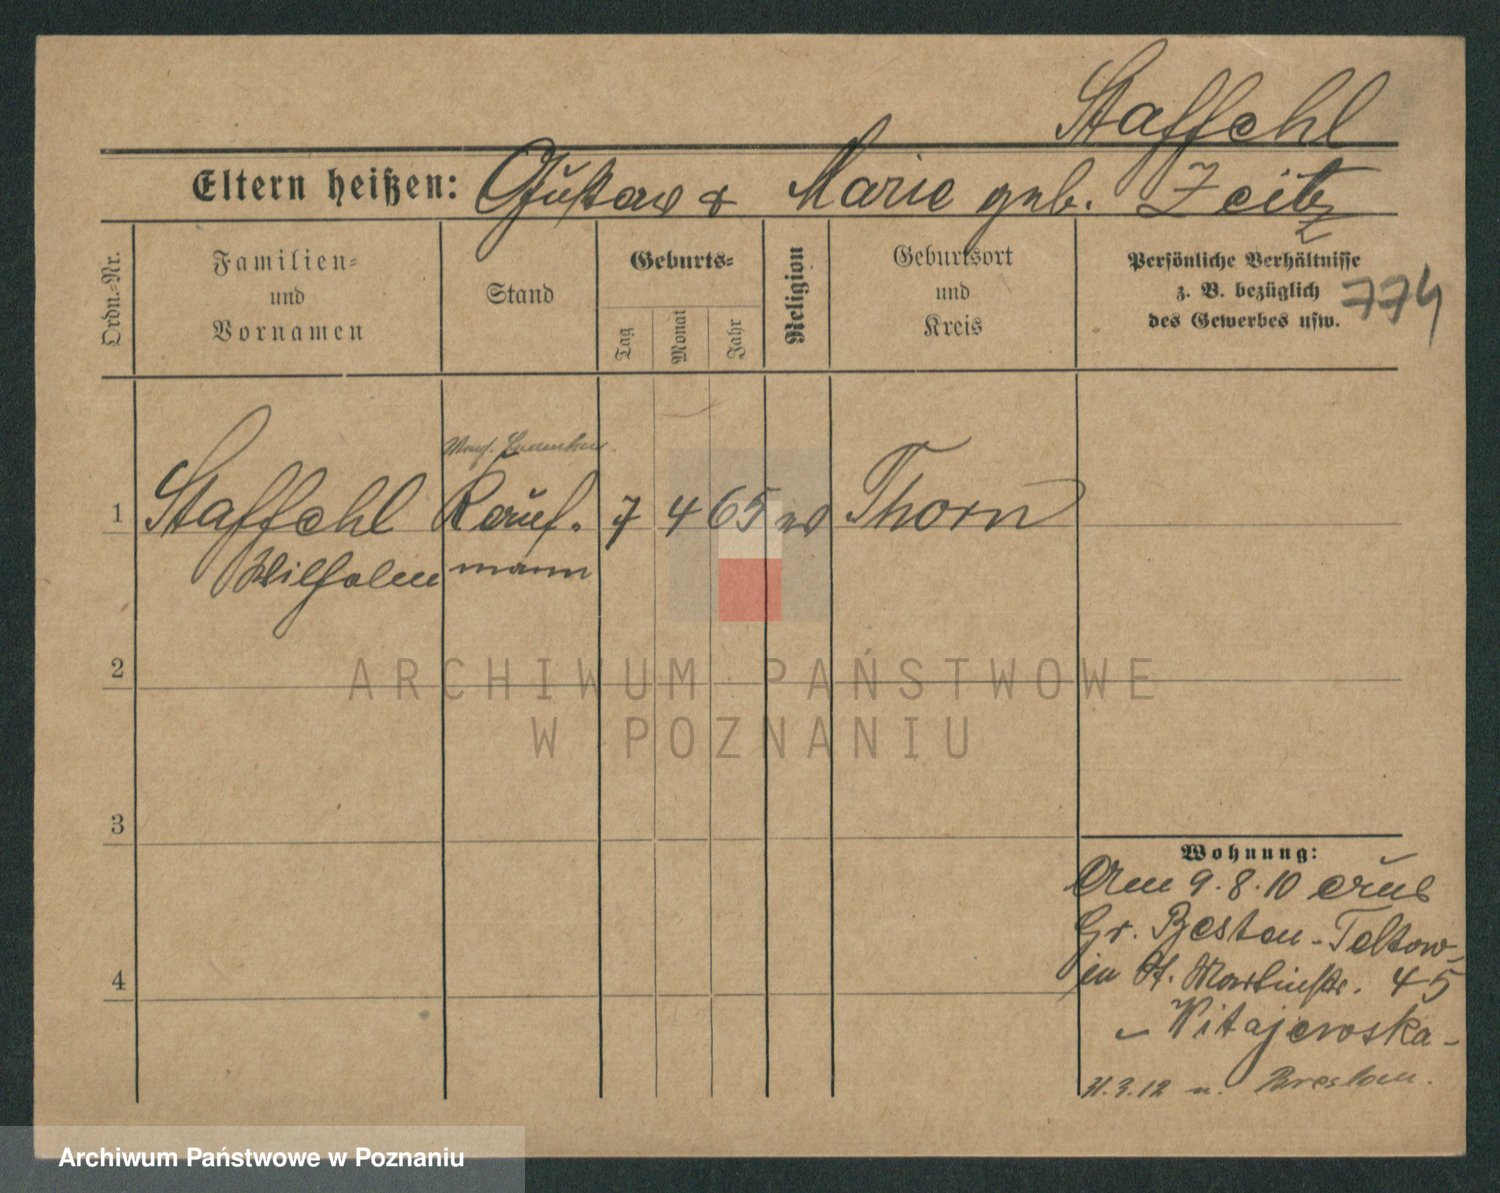 Staffehl
Eltern heißen: Gustav & Marie geb. Zeitz
Ordn.-Nr.
Familien-
und
Vornamen
Stand
Geburts-
Tag
Monat
Jahr
Religion
Geburtsort
und
Kreis
Persönliche Verhältnisse
z. B. bezüglich
des Gewerbes usw.
774
1
Staffehl
Wilhelm
Kauf-
mann
7
4
65
ev
Thorn
2
3
4
Wohnung:
Am 9.8.10 aus
Gr. Besten-Teltow-
in St. Martinstr. 45
Witajewska-
31.3.12 n. Breslau.
ARCHIWUM PAŃSTWOWE
W POZNANIU
Archiwum Państwowe w Poznaniu